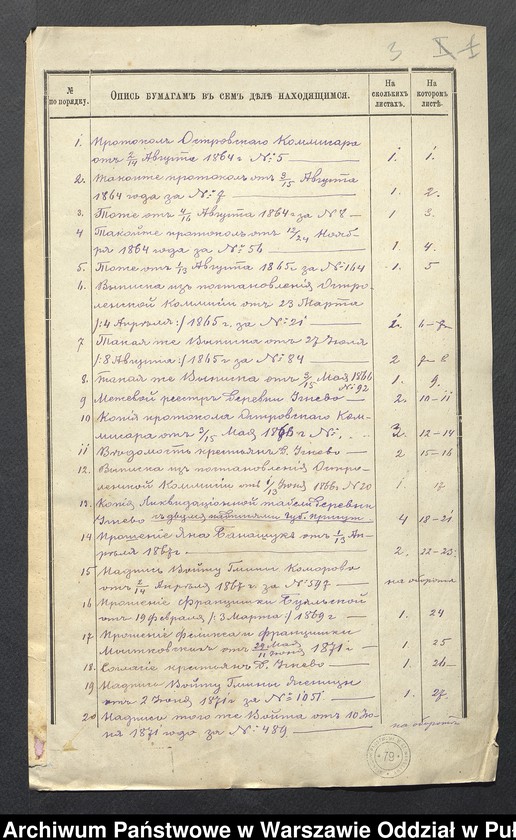 3 I 1
№ по порядку.
Опись бумагамъ въ семъ дѣлѣ находящимся.
На сколькихъ листахъ.
На которомъ листѣ.
1. Протоколъ Островскаго Коммисара
отъ 2/14 Августа 1864 г. № 5 1. 1.
2. Таковой же протоколъ отъ 3/15 Августа
1864 года за № 7 1. 2.
3. Тоже отъ 4/16 Августа 1864 г. за № 8 1 3.
4 Таковой же протоколъ отъ 12/24 Нояб-
ря 1864 года за № 56 1. 4.
5. Тоже отъ 1/13 Августа 1865 г. за № 164 1. 5
6. Выписка изъ постановленія Остро-
ленской Коммисіи отъ 23 Марта
/:4 Апрѣля:/ 1865 г. за № 21 2. 6-7
7 Такая же Выписка отъ 27 Іюля
/:8 Августа:/ 1865 г. за № 84 2
8. Такая же Выписка отъ 3/15 Мая 1866
№ 92 1. 9.
9 Межевой реестръ Деревни Угнево 2. 10-11
10 Копія протокола Островскаго Ком-
мисара отъ 3/15 Мая 1866 г. №. 3. 12-14
11 Вѣдомость крестьянъ д. Угнево 2 15-16
12. Выписка изъ постановленія Остро-
ленской Коммисіи отъ 1/13 Іюня 1866 г. № 20 1. 17
13. Копія Ликвидаціонной табели Деревни
Угнево съ двумя Губ. Присут. 4 18-21
14 Прошеніе Яна отъ 1/13 Ап-
рѣля 1867 г. 2. 22-23.
15 Надпись Войту Гмины Коморово
отъ 2/14 Апрѣля 1867 г. за № 597 на оборотѣ
16 Прошеніе Францишки
отъ 19 Февраля /:3 Марта:/ 1869 г 1. 24
17 Прошеніе Феликса и Францишки
отъ 29 Мая/11 Іюня 1871 г. 1. 25
18. Согласіе крестьянъ д. Угнево 1. 26
19 Надпись Войту Гмины Ясеницы
отъ 2 Іюня 1871 г за № 1051 1. 27.
20 Надпись того же Войта отъ 10 Iю-
ня 1871 года за № 489 на оборотѣ
79
Archiwum Państwowe w Warszawie Oddział w Puł